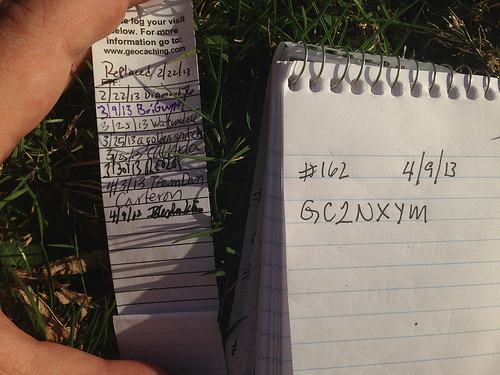 e log your visit
elow. For more
information go to:
www.geocaching.com
Replaced 2/22/13
2/22/13
3/9/13 BriGuy
3/23/13
3/25/13 a golden
3/30/13
4/3/13 TeamDan
Carleron
4/9/13
#162 4/9/13
GC2NXYM